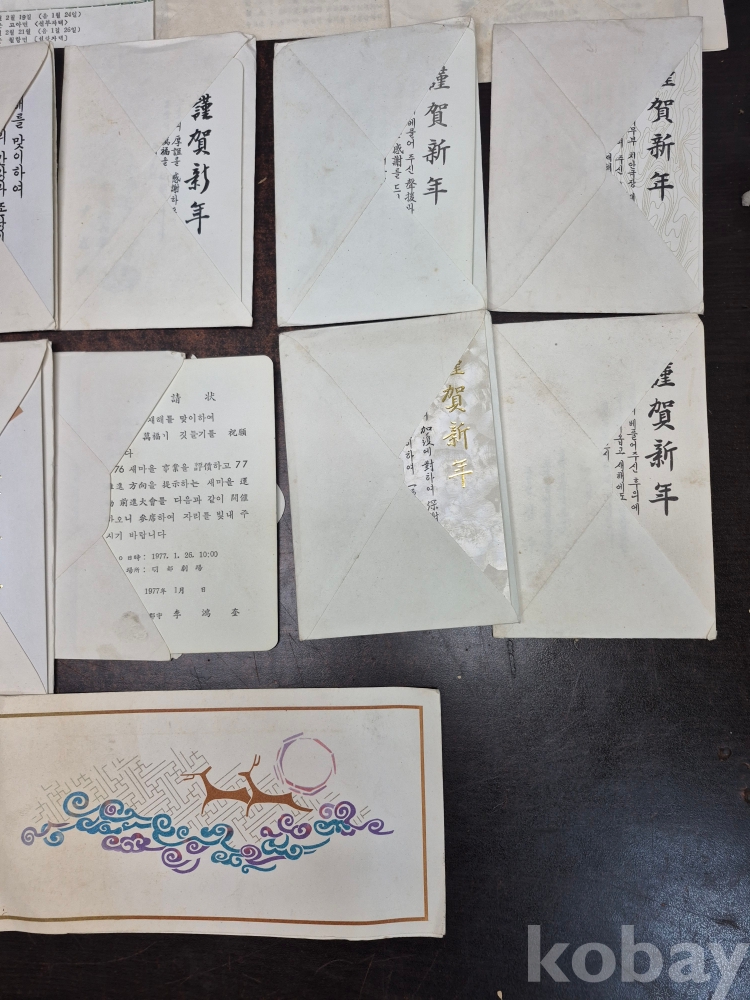 2월 19일 (음 1월 24일)
2월 21일 (음 1월 26일)
를 맞이하여
謹賀新年
厚誼를 感謝하
萬福을
謹賀新年
베풀어 주신 聲援과
感謝를 드
賀新年
치안국장
주신
請狀
새해를 맞이하여
萬福이 깃들기를 祝願
다
76 새마을 事業을 評價하고 77
進 方向을 提示하는 새마을 運
前進大會를 다음과 같이 開催
하오니 參席하여 자리를 빛내 주
시기 바랍니다
日時: 1977. 1. 26. 10:00
場所: 劇場
1977年 1月 日
郡守 李鴻奎
賀新年
加護에 對하여 深
하여
謹賀新年
베풀어주신 후의에
새해에도
kobay